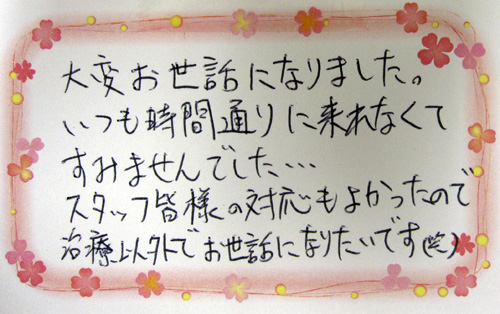 大変お世話になりました。
いつも時間通りに来れなくて
すみませんでした…
スタッフ皆様の対応もよかったので
治療以外でお世話になりたいです(笑)